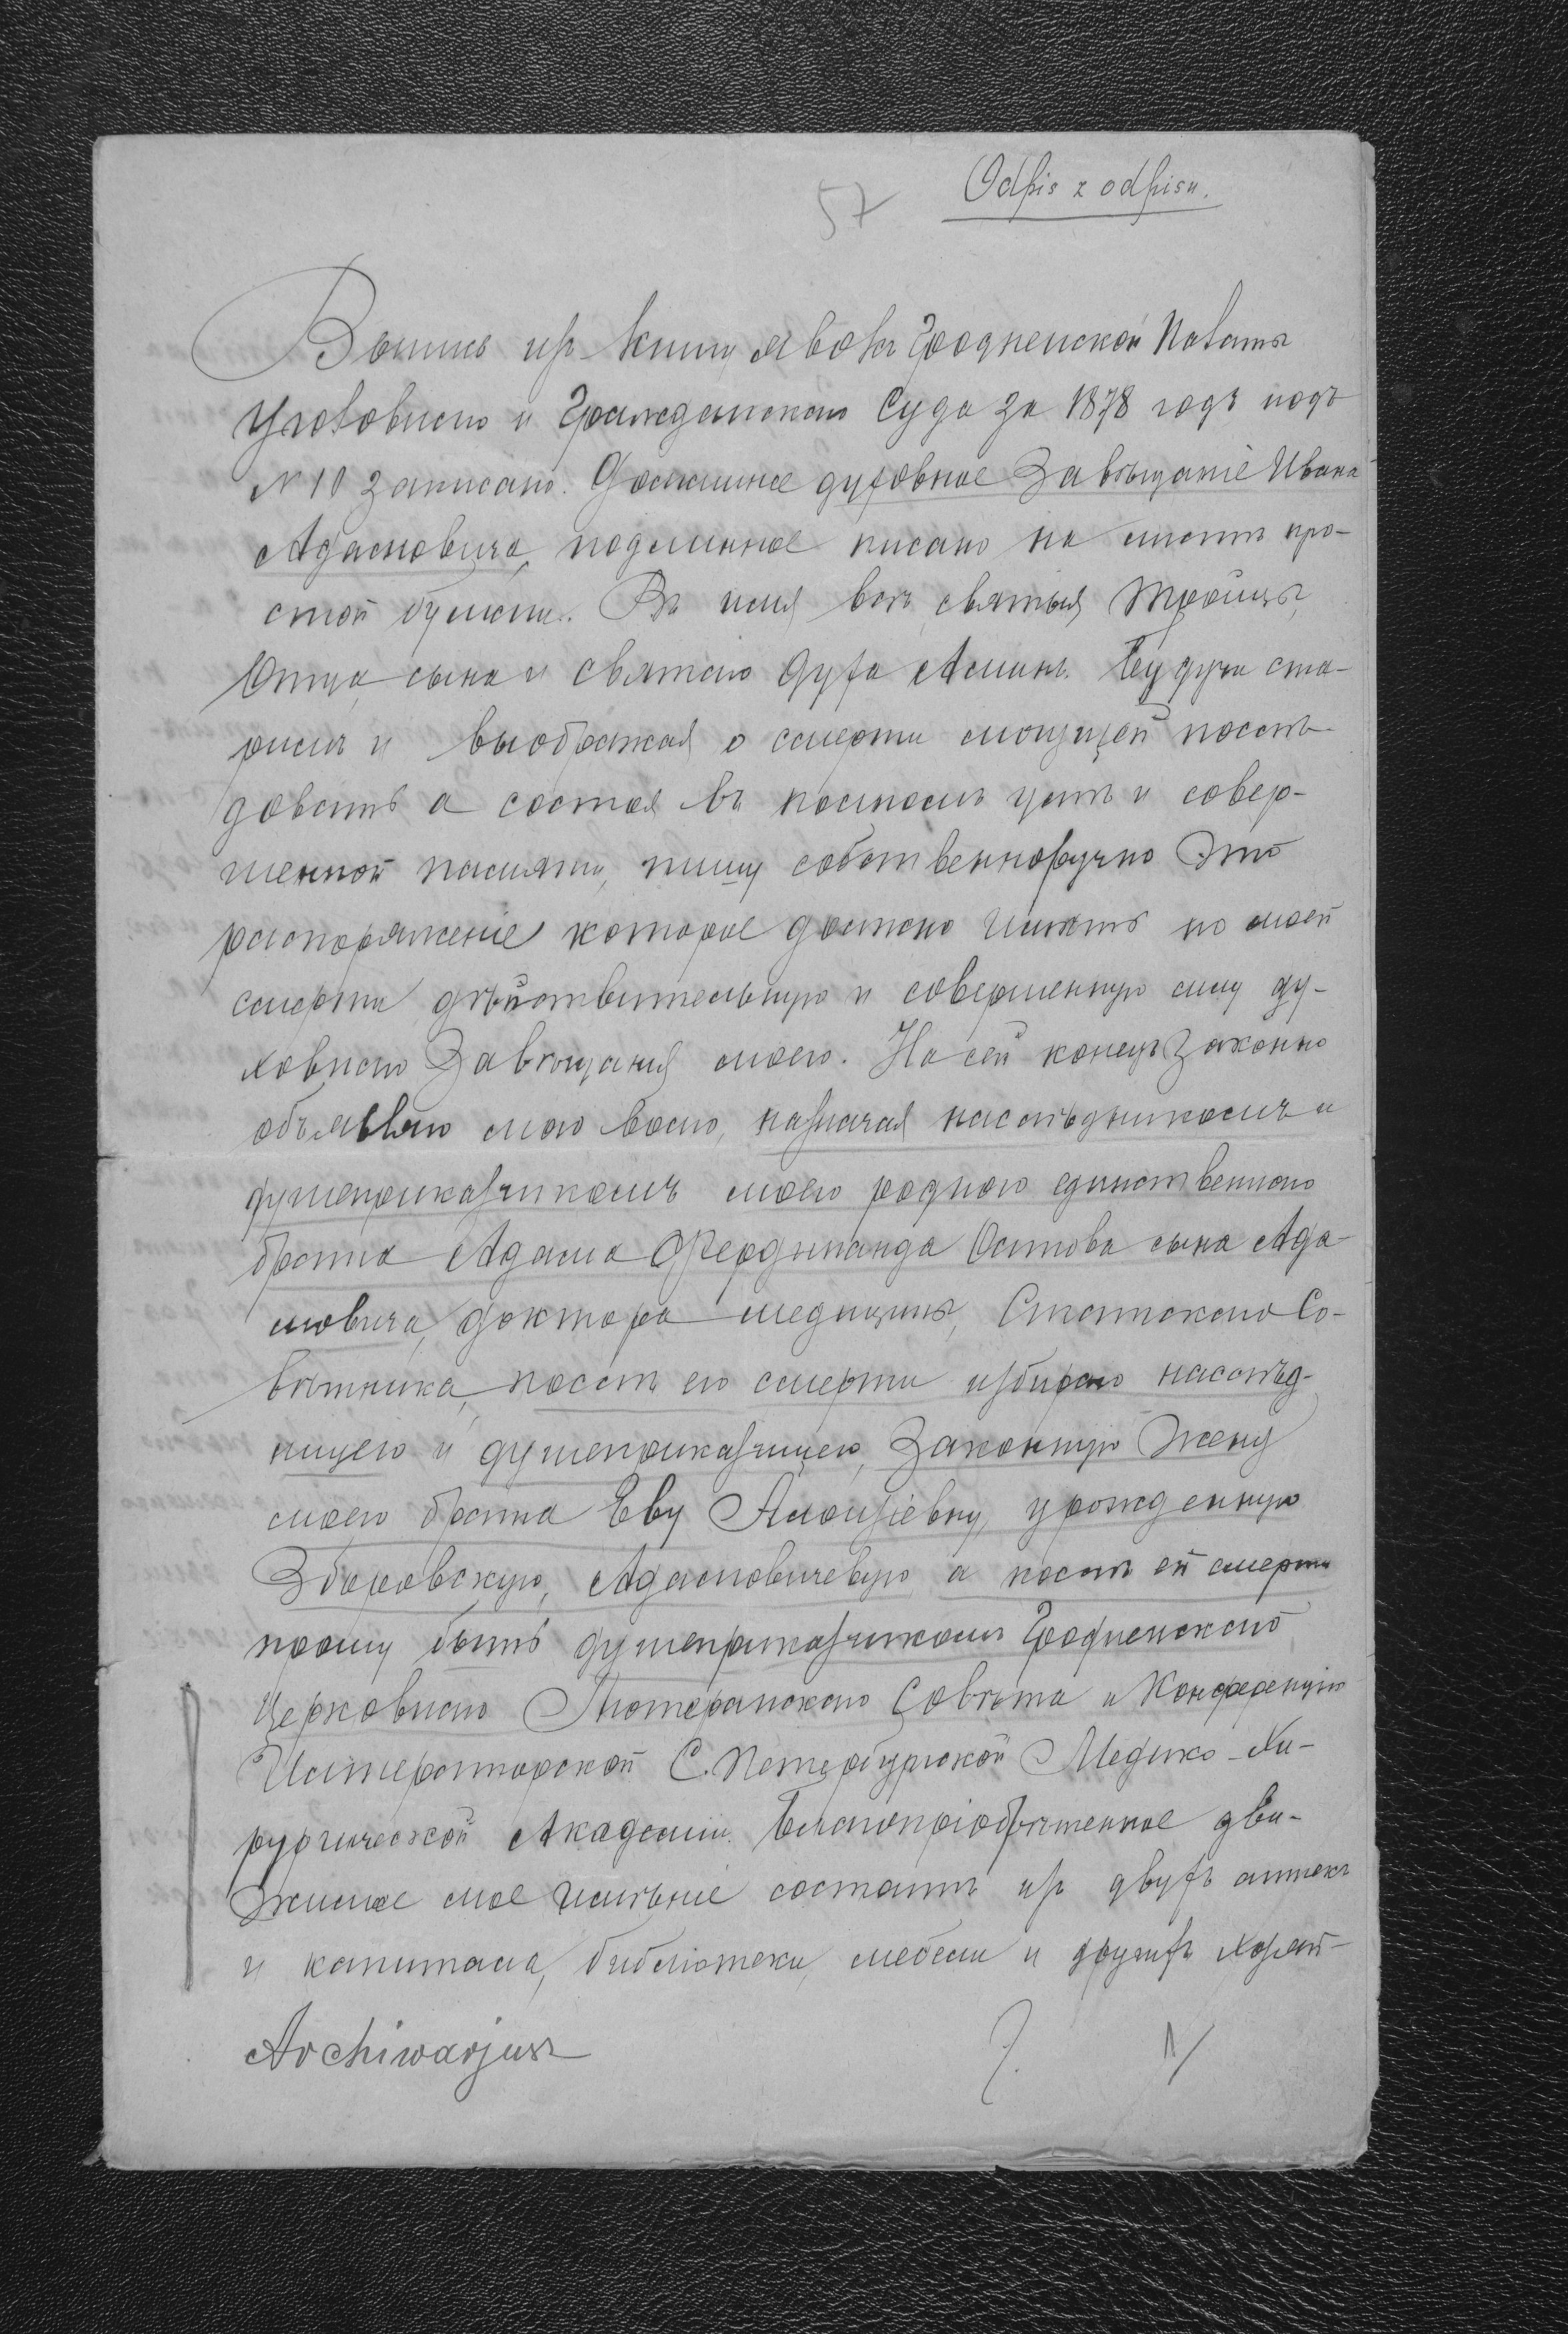 57
Odpis z odpisu.
Выпись изъ книги явокъ Гродненской Палаты
Уголовного и Гражданского Суда за 1878 годъ подъ
№ 10 записано. Домашнее духовное Завѣщаніе Ивана
Адамовича, подлинное писано на листѣ про-
стой бумаги. Во имя всея святыя Троицы,
Отца сына и святого Духа Аминь. Будучи ста-
рымъ и выображая о смерти могущей послѣ-
довать а состоя въ полномъ умѣ и совер-
шенной памяти, пишу собственноручно Это
распоряженіе которое должно имѣть по моей
смерти дѣйствительную и совершенную силу ду-
ховного Завѣщанія моего. На сей конецъ Законно
объявляю мою волю, назначая наслѣдникомъ и
душеприказчикомъ моего родного единственного
брата Адама Фердинанда Осипова сына Ада-
мовича, доктора медицины, Статского Со-
вѣтника, послѣ его смерти избираю наслѣд-
ницею и душеприказчицею, Законную Жену
моего брата Еву Алоизіевну, урожденную
Зборовскую, Адамовичевую а послѣ ей смерти
прошу быть душеприказчикомъ Гродненского
Церковного Лютеранского Совѣта и Конференцію
Императорской С. Петербургской Медико-Хи-
рургической Академіи. Благопріобрѣтенное дви-
жимое мое имѣніе состоитъ изъ двухъ аптекъ
и капитала, библіотеки, мебели и другихъ хозяй-
Archiwarjusz